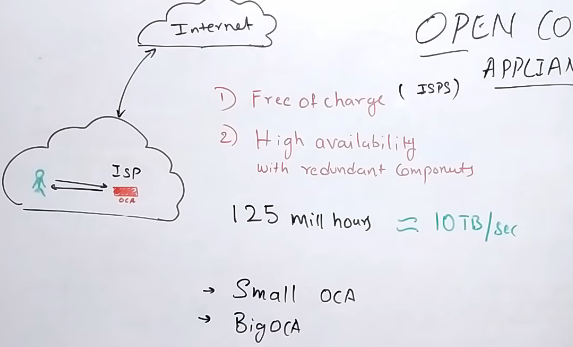 Internet
OPEN CO
APPLIAN
1) Free of charge (ISPS)
2) High availability
with redundant Componuts
ISP
OCA
125 mill hours ≈ 10TB/sec
→ Small OCA
→ Big OCA